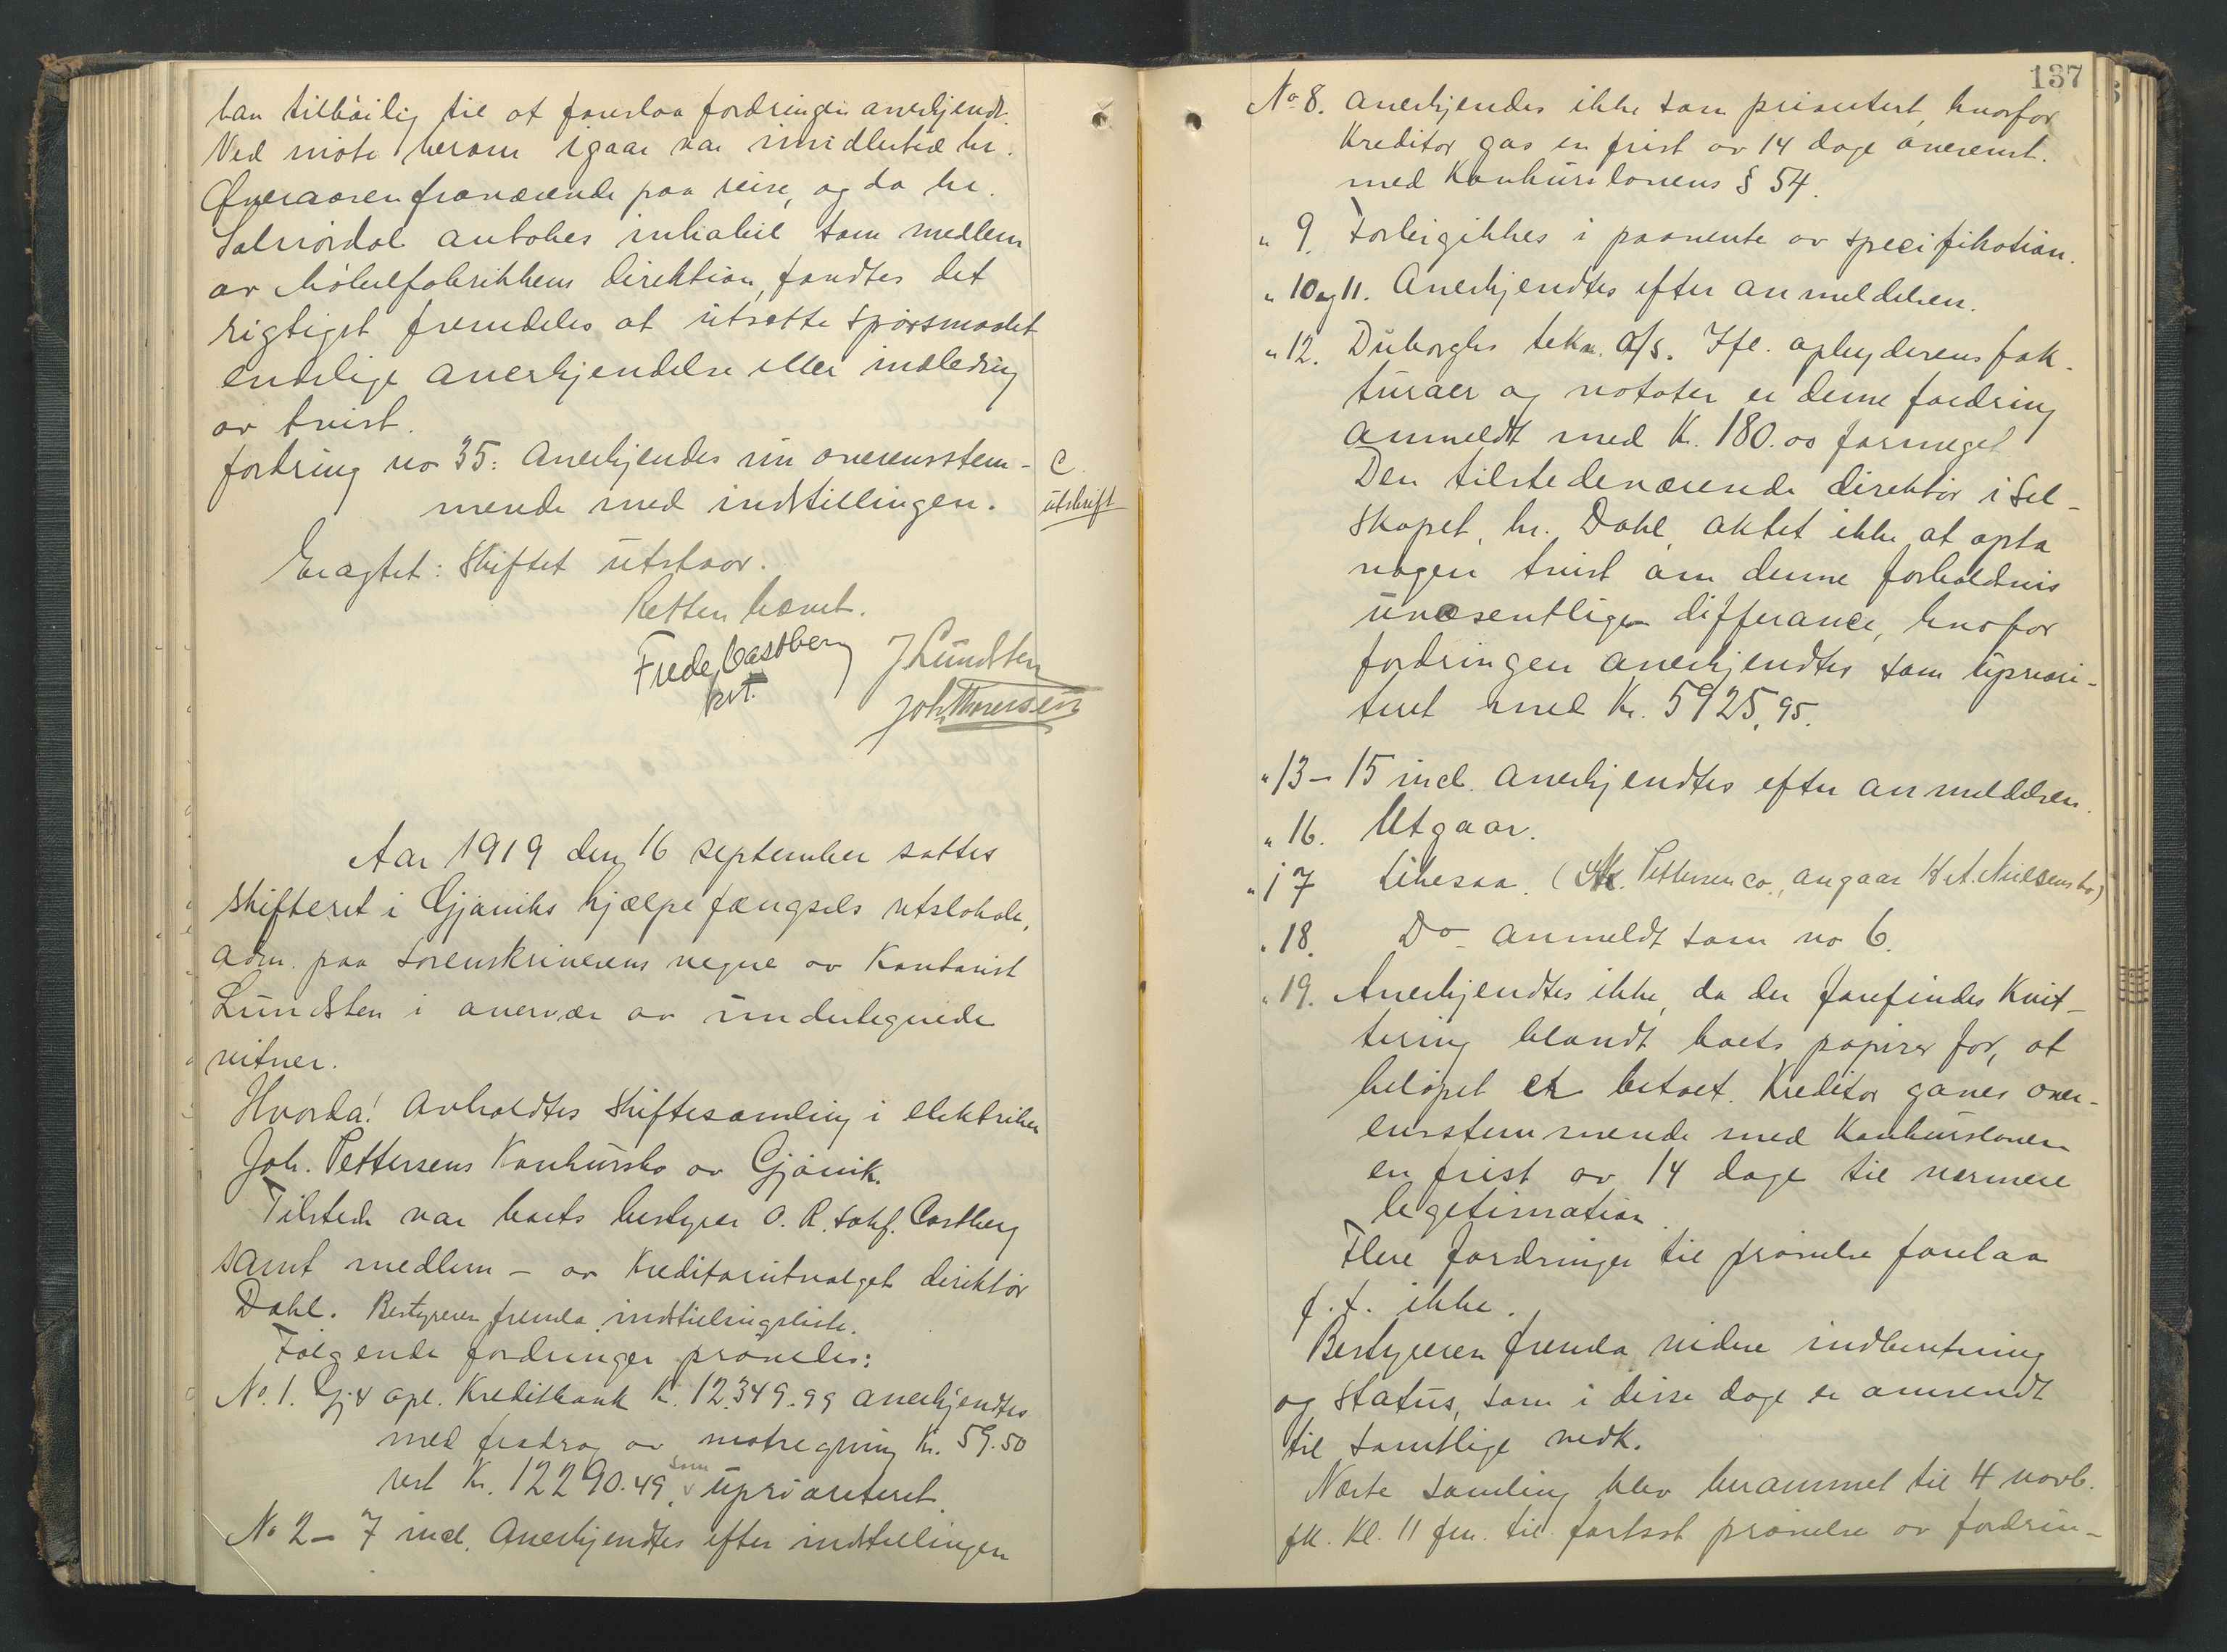 han tilbøilig til at foreslaa fordringen anerkjendt.
Ved møte herom igaar var imidlertid hr.
Øveraasen fraværende paa reise, og da hr.
Salvordal antokes inhabil som medlem
av Møbelfabrikkens direktion, fandtes det
rigtigst fremdeles at utsætte spørsmaalet
endelige anerkjendelse eller indledning
av tvist.
fordring no 35: Anerkjendes nu overensstem-
mende med indstillingen.
C.
utskrift
Eragtet: Skiftet utstaar.
Retten hævet.
Frede Castberg
J Lundsten
Joh. Thoresen
Aar 1919 den 16 september sattes
skifteret i Gjøviks hjælpefængsels retslokale,
adm. paa sorenskriverens vegne av kontorist
Lundsten i overvær av undertegnede
vitner.
Hvorda! Avholdtes skiftesamling i elektriker
Joh. Pettersens konkursbo av Gjøvik.
Tilstede var boets bestyrer O. R. sakf. Castberg
samt medlem – av kreditorutvalget direktør
Dahl. Bestyreren fremla indstillingsliste.
Følgende fordringer prøvedes:
No. 1. Gj. & opl. Kreditbank Kr. 12.349.99 anerkjendtes
med fradrag av motregning Kr. 59.50
rest Kr. 12290.49, som upriouteret.
No 2 – 7 incl. Anerkjendtes efter indstillingen
137
No 8. Anerkjendes ikke som prioritert, hvorfor
Kreditor gas en frist av 14 dage overenst.
med Konkurslovens § 54.
" 9. Forbigikkes i paavente av specifikation.
" 10 og 11. Anerkjendtes efter anmeldelsen.
" 12. Duborghs tekn. A/S. Ifl. opbyderens fak-
turaer og notater er denne fordring
anmeldt med Kr. 180.00 formeget
Den tilstedeværende direktør i Sel-
skapet, hr. Dahl, aktet ikke at opta
nogen tvist om denne forholdsvis
uvæsentlige differance, hvorfor
fordringen anerkjendtes som uprior-
tert med Kr. 5925.95.
" 13 – 15 incl. anerkjendtes efter anmeldelsen.
" 16. Utgaar.
" 17 Likesaa. ( Pettersen co., angaar K. A. Nielsens bo)
" 18. Do – anmeldt som no 6.
" 19. Anerkjendtes ikke, da der forefindes kvit-
tering blandt boets papirer for, at
beløpet er betalt. Kreditor gaves over-
ensstemmende med Konkursloven
en frist av 14 dage til nærmere
legetimation.
Flere fordringer til prøvelse forelaa
f. t. ikke.
Bestyreren fremla videre indberetning
og status, som i disse dage er omsendt
til samtlige vedk.
Næste samling blev berammet til 4 novb.
fk. kl. 11 fm. til fortsat prøvelse av fordrin-